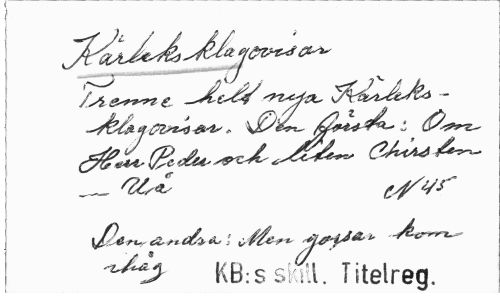 Kärleksklagovisor
Trenne helt nya Kärleks-
klagovisor. Den första: Om
Herr Peder och liten Chirsten
— U.å N 45
Den andra: Men gossar kom
ihåg KB:s skill. Titelreg.